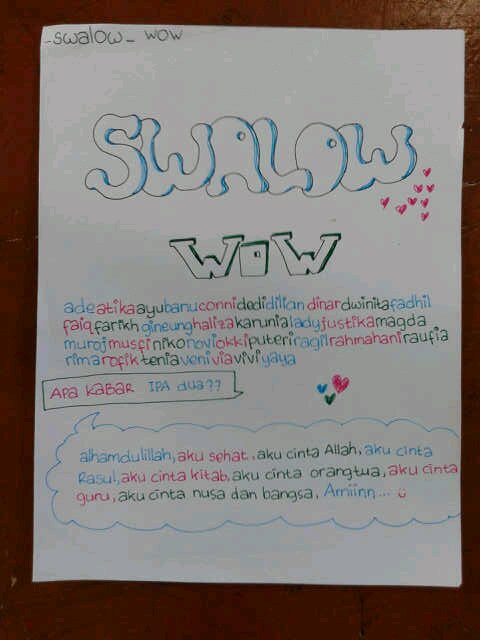 _swalow_ wow
SWALOW
WOW
adeatikaayubanuconnidedidiliandinardwinitafadhil
faiqfarikhgineunghalizakarunialadyjustikamagda
murojmusfinikonoviokkiputeriragilrahmahaniraufia
rimarofikteniaveniviaviviyaya
APA KABAR IPA dua??
alhamdulillah, aku sehat, aku cinta Allah, aku cinta
Rasul, aku cinta kitab, aku cinta orangtua, aku cinta
guru, aku cinta nusa dan bangsa, Amiinn...